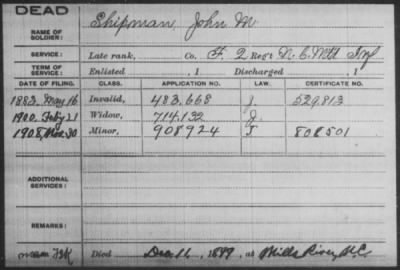 DEAD
NAME OF SOLDIER: Shipman, John M.
SERVICE: Late rank, Co. F, 2 Reg't N. C. Mtd Inf
TERM OF SERVICE: Enlisted , 1 Discharged , 1
DATE OF FILING. CLASS. APPLICATION NO. LAW. CERTIFICATE NO.
1883, May 16 Invalid, 483.668 J. 529.813
1900, Feby 21 Widow, 714.132 J.
1908, Nov. 30 Minor, 908924 J 808501
ADDITIONAL SERVICES:
REMARKS:
Died Dec. 16, 1899, at Mills River, N.C.